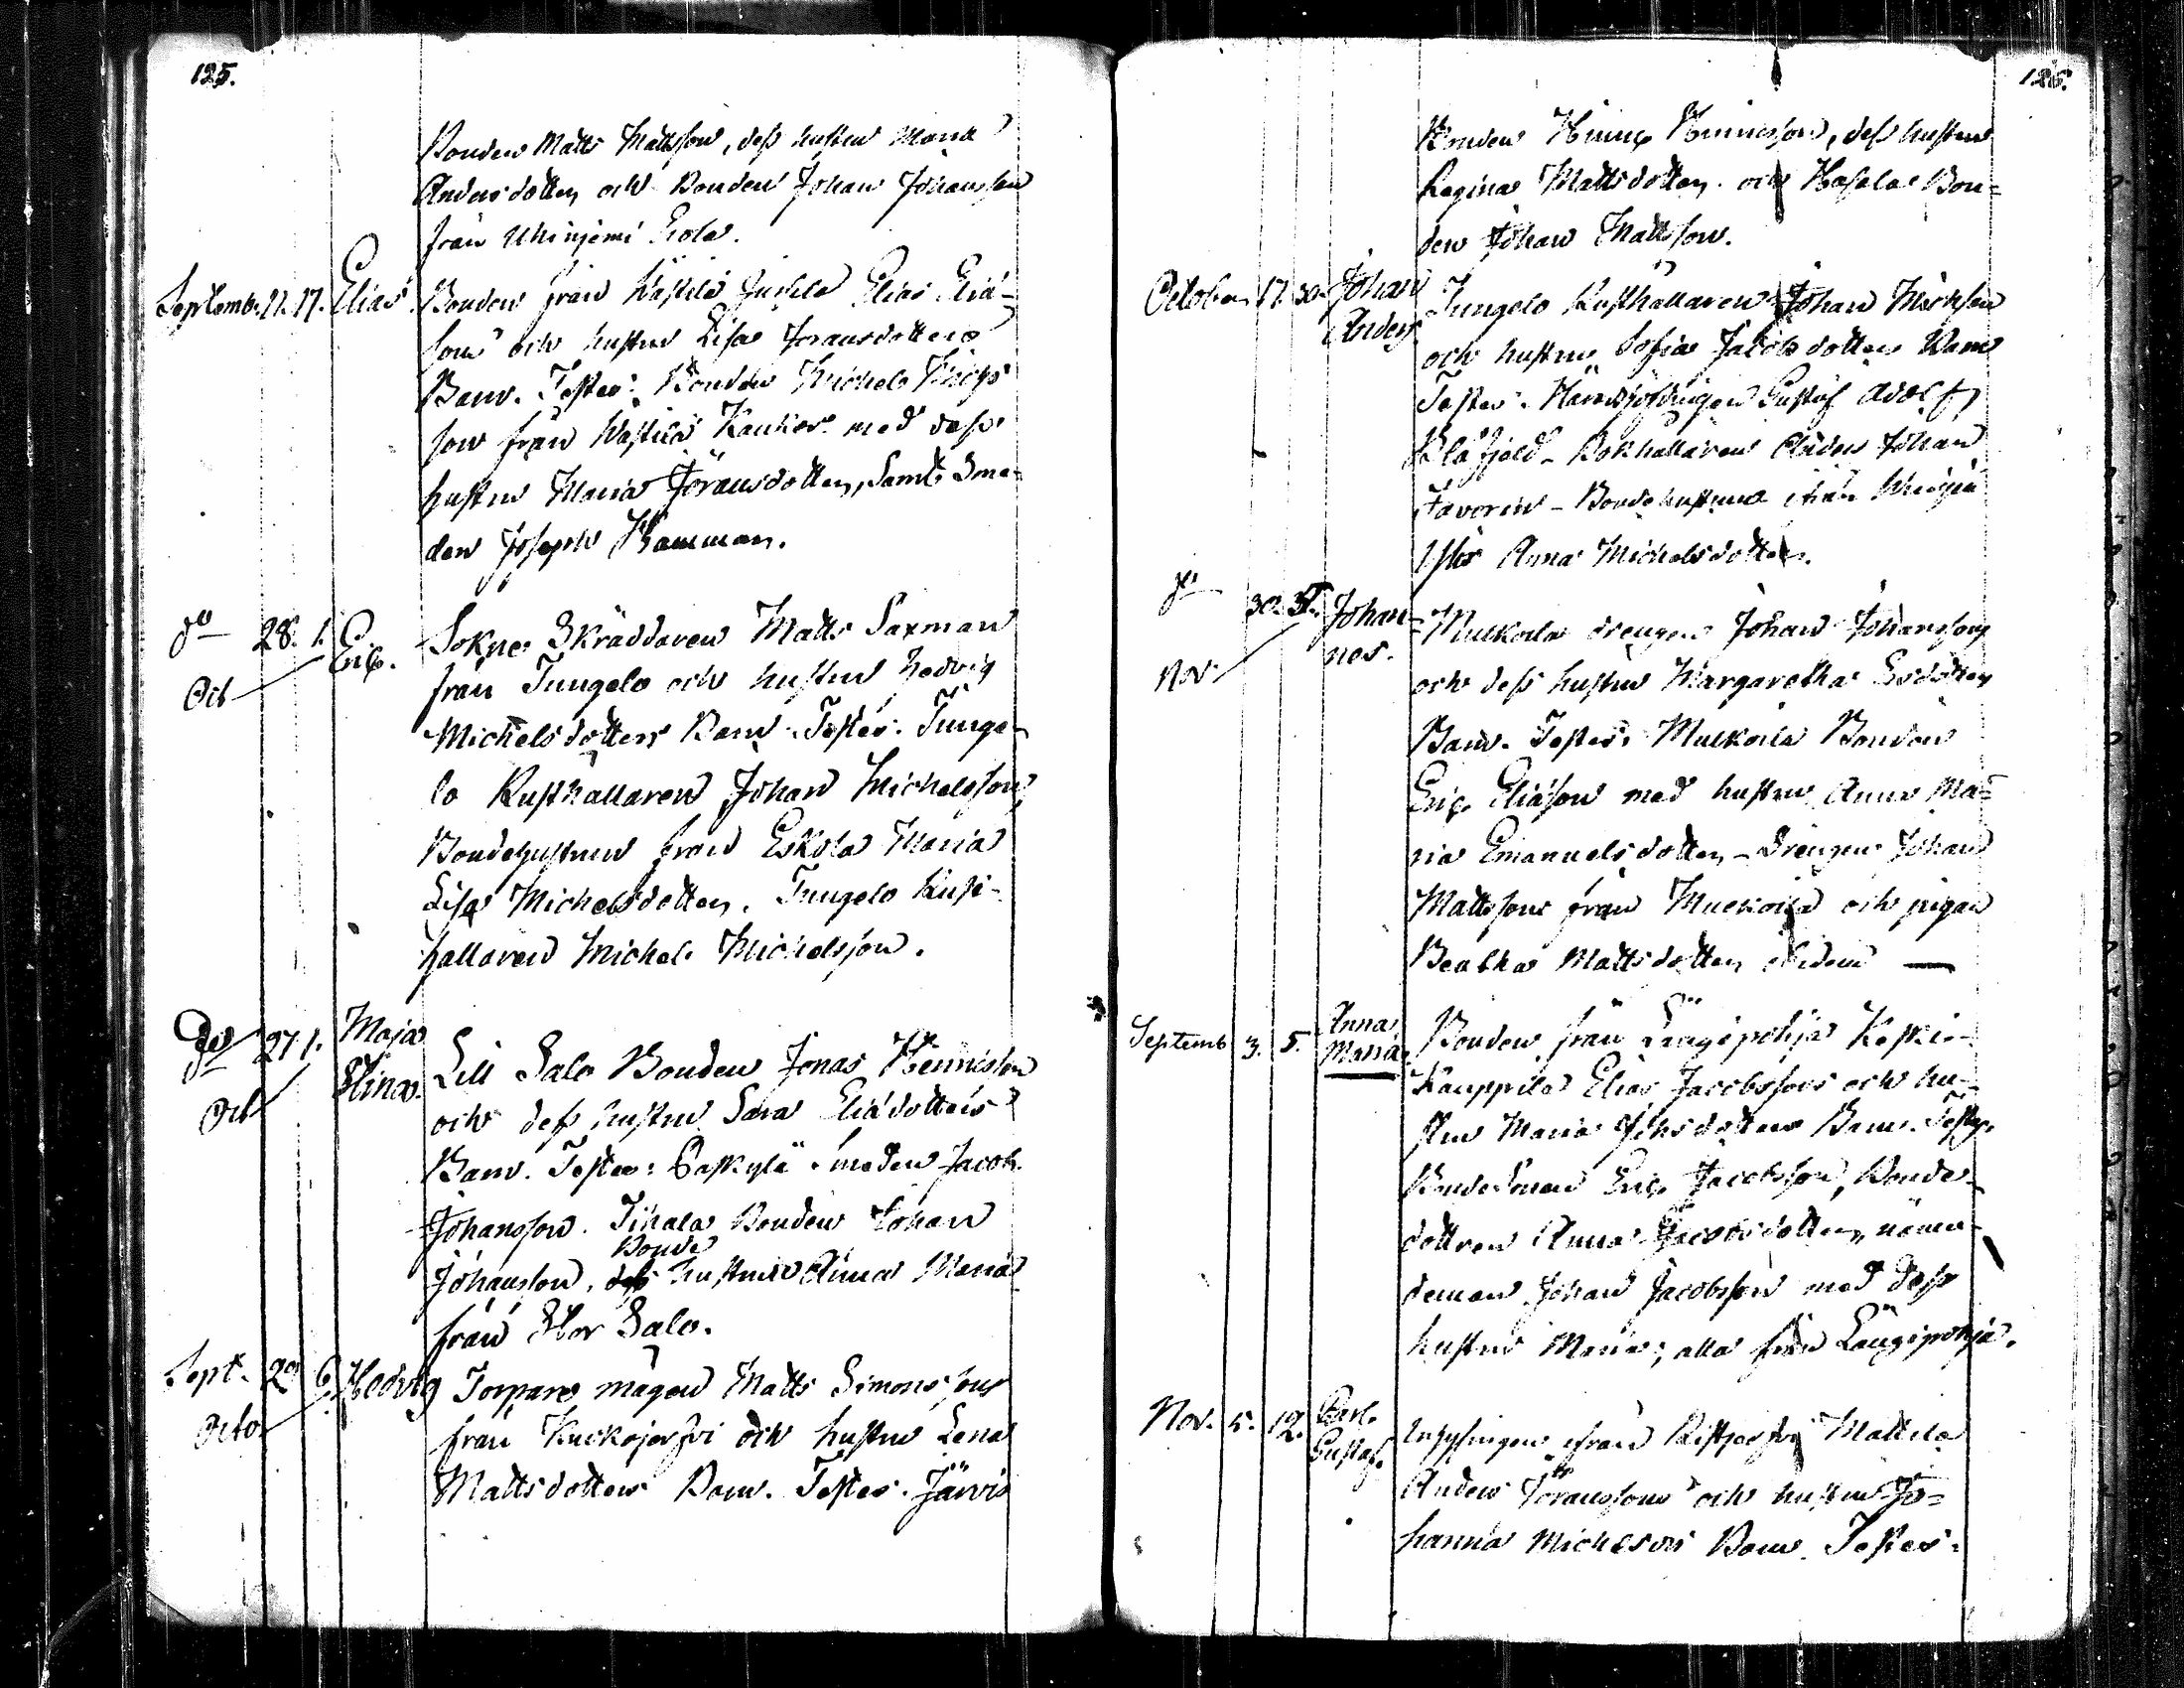 125.
Bonden Matts Mattsson, dess hustru Maria
Andersdotter och Bonden Johan Johansson
från Uhinjemi Erola.
Septemb. 11. 17. Elias Bonden från Wästilä Jussila Elias Elia-
sons och hustru Lisa Joransdotters
Barn. Testes: Bonden Michel Michels
son från Wästilä Kaukor med dess
hustru Maria Joransdotter, Samt Sme-
den Joseph Hamman.
do 28. 1. Eric. Sokne Skräddaren Matts Saxman
Oct från Jungelo och hustru Hedvig
Michelsdotters Barn. Testes. Junge-
lo Rusthållaren Johan Michelsson,
Bondehustrun från Eskola Maria
Lisa Michelsdotter. Jungelo Rust-
hållaren Michel Michelsson.
do 27 1. Maja Stina. Lill Salo Bonden Jonas Hennisson
Oct och dess hustru Sara Eliædotters
Barn. Testes: Paskylä smeden Jacob
Johansson. Tihala Bonden Johan
Johansson, Bonde hustrun Anna Maria
från Stor Salo.
Sept. 29 6. Hedvig Torpare mågen Matts Simonssons
Octo från Kuckojerfvi och hustru Lena
Mattsdotters Barn. Testes. Järvis
126.
Bonden Hinric Hinricsson, dess hustru
Regina Mattsdotter och Hasala Bon=
den Johan Mattsson.
October 17 30. Johan Anders. Jungelo Rusthållaren Johan Michelson
och hustru Sofia Jacobsdotters Barn
Testes. Häradshöfdingen Gustaf Adolf
Blåfjeld - Bokhållaren Anders Johan
Favorin - Bondehustrun från
Anna Michelsdotter.
do 30. 5. Johan=nes. Muckoila drengen Johan Johanssons
Nov. och dess hustru Margaretha Esdotters
Barn. Testes: Muckoila Bonden
Eric Eliason med hustru Anna Ma=
ria Emanuelsdotter - Drengen Johan
Mattsson från Muckoila och pigan
Beatha Mattsdotter ibidem —
Septemb 3. 5. Anna Maria. Bonden från Längipohja Keski-
Kauppila Elias Jacobssons och hu-
stru Maria Johsdotters Barn. Testes.
BondeSonen Eric Jacobsson, Bonde-
dottren Anna Jacobsdotter, näm-
deman Johan Jacobsson med dess
hustru Maria; alla från Längipohja.
Nov. 5. 12. Carl Gustaf. Inhysingen från Ristjerfvi Mattila
Anders Joranssons och hustru Jo=
hanna Michelsdrs Barn. Testes.